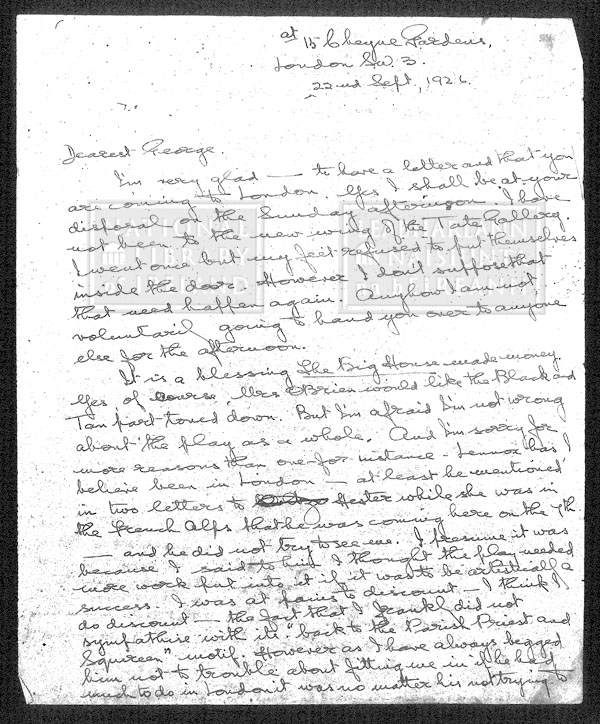 at 15 Cheyne Gardens,
London S.W. 3.
22nd Sept, 1926.
Dearest George.
I'm very glad — to have a letter and that you
are coming to London. Yes I shall be at your
disposal on the Sunday afternoon. I have
not been to the new wing of the Tate Gallery.
I went once but my feet refused to put themselves
inside the door. However I don't suppose that
that need happen again. Anyhow I am not
voluntarily going to hand you over to anyone
else for the afternoon.
It is a blessing The Big House made money.
Yes of course, Mrs O'Brien would like the Black and
Tan part toned down. But I'm afraid I'm not wrong
about the play as a whole. And I'm sorry for
more reasons than one - for instance - Lennox has I
believe been in London — at least he mentioned
in two letters to Hester while she was in
the French Alps that he was coming here on the 7th.
— and he did not try to see me. I presume it was
because I said to him I thought the play needed
more work put into it if it was to be artistically a
success. I was at pains to discount — I think I
do discount — the fact that I frankly did not
sympathise with its "back to the Parish Priest and
Squireen" motif. However as I have always begged
him not to trouble about fitting me in if he had
much to do in London it was no matter his not trying to
NATIONAL
LIBRARY
OF IRELAND
LEABHARLANN
NÁISIÚNTA
na hÉIREANN